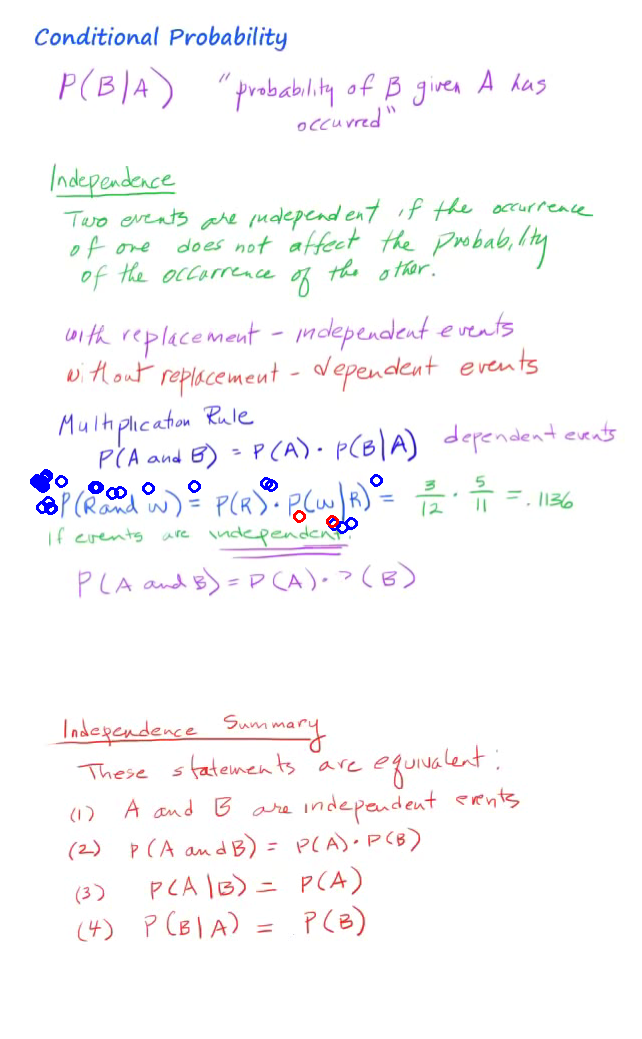 Conditional Probability
P(B|A) "probability of B given A has
occurred"
Independence
Two events are independent if the occurrence
of one does not affect the probability
of the occurrence of the other.
with replacement - independent events
without replacement - dependent events
Multiplication Rule
P(A and B) = P(A) · P(B|A) dependent events
P(R and W) = P(R) · P(W|R) = 3/12 · 5/11 = .1136
If events are independent:
P(A and B) = P(A) · P(B)
Independence Summary
These statements are equivalent:
(1) A and B are independent events
(2) P(A and B) = P(A) · P(B)
(3) P(A|B) = P(A)
(4) P(B|A) = P(B)